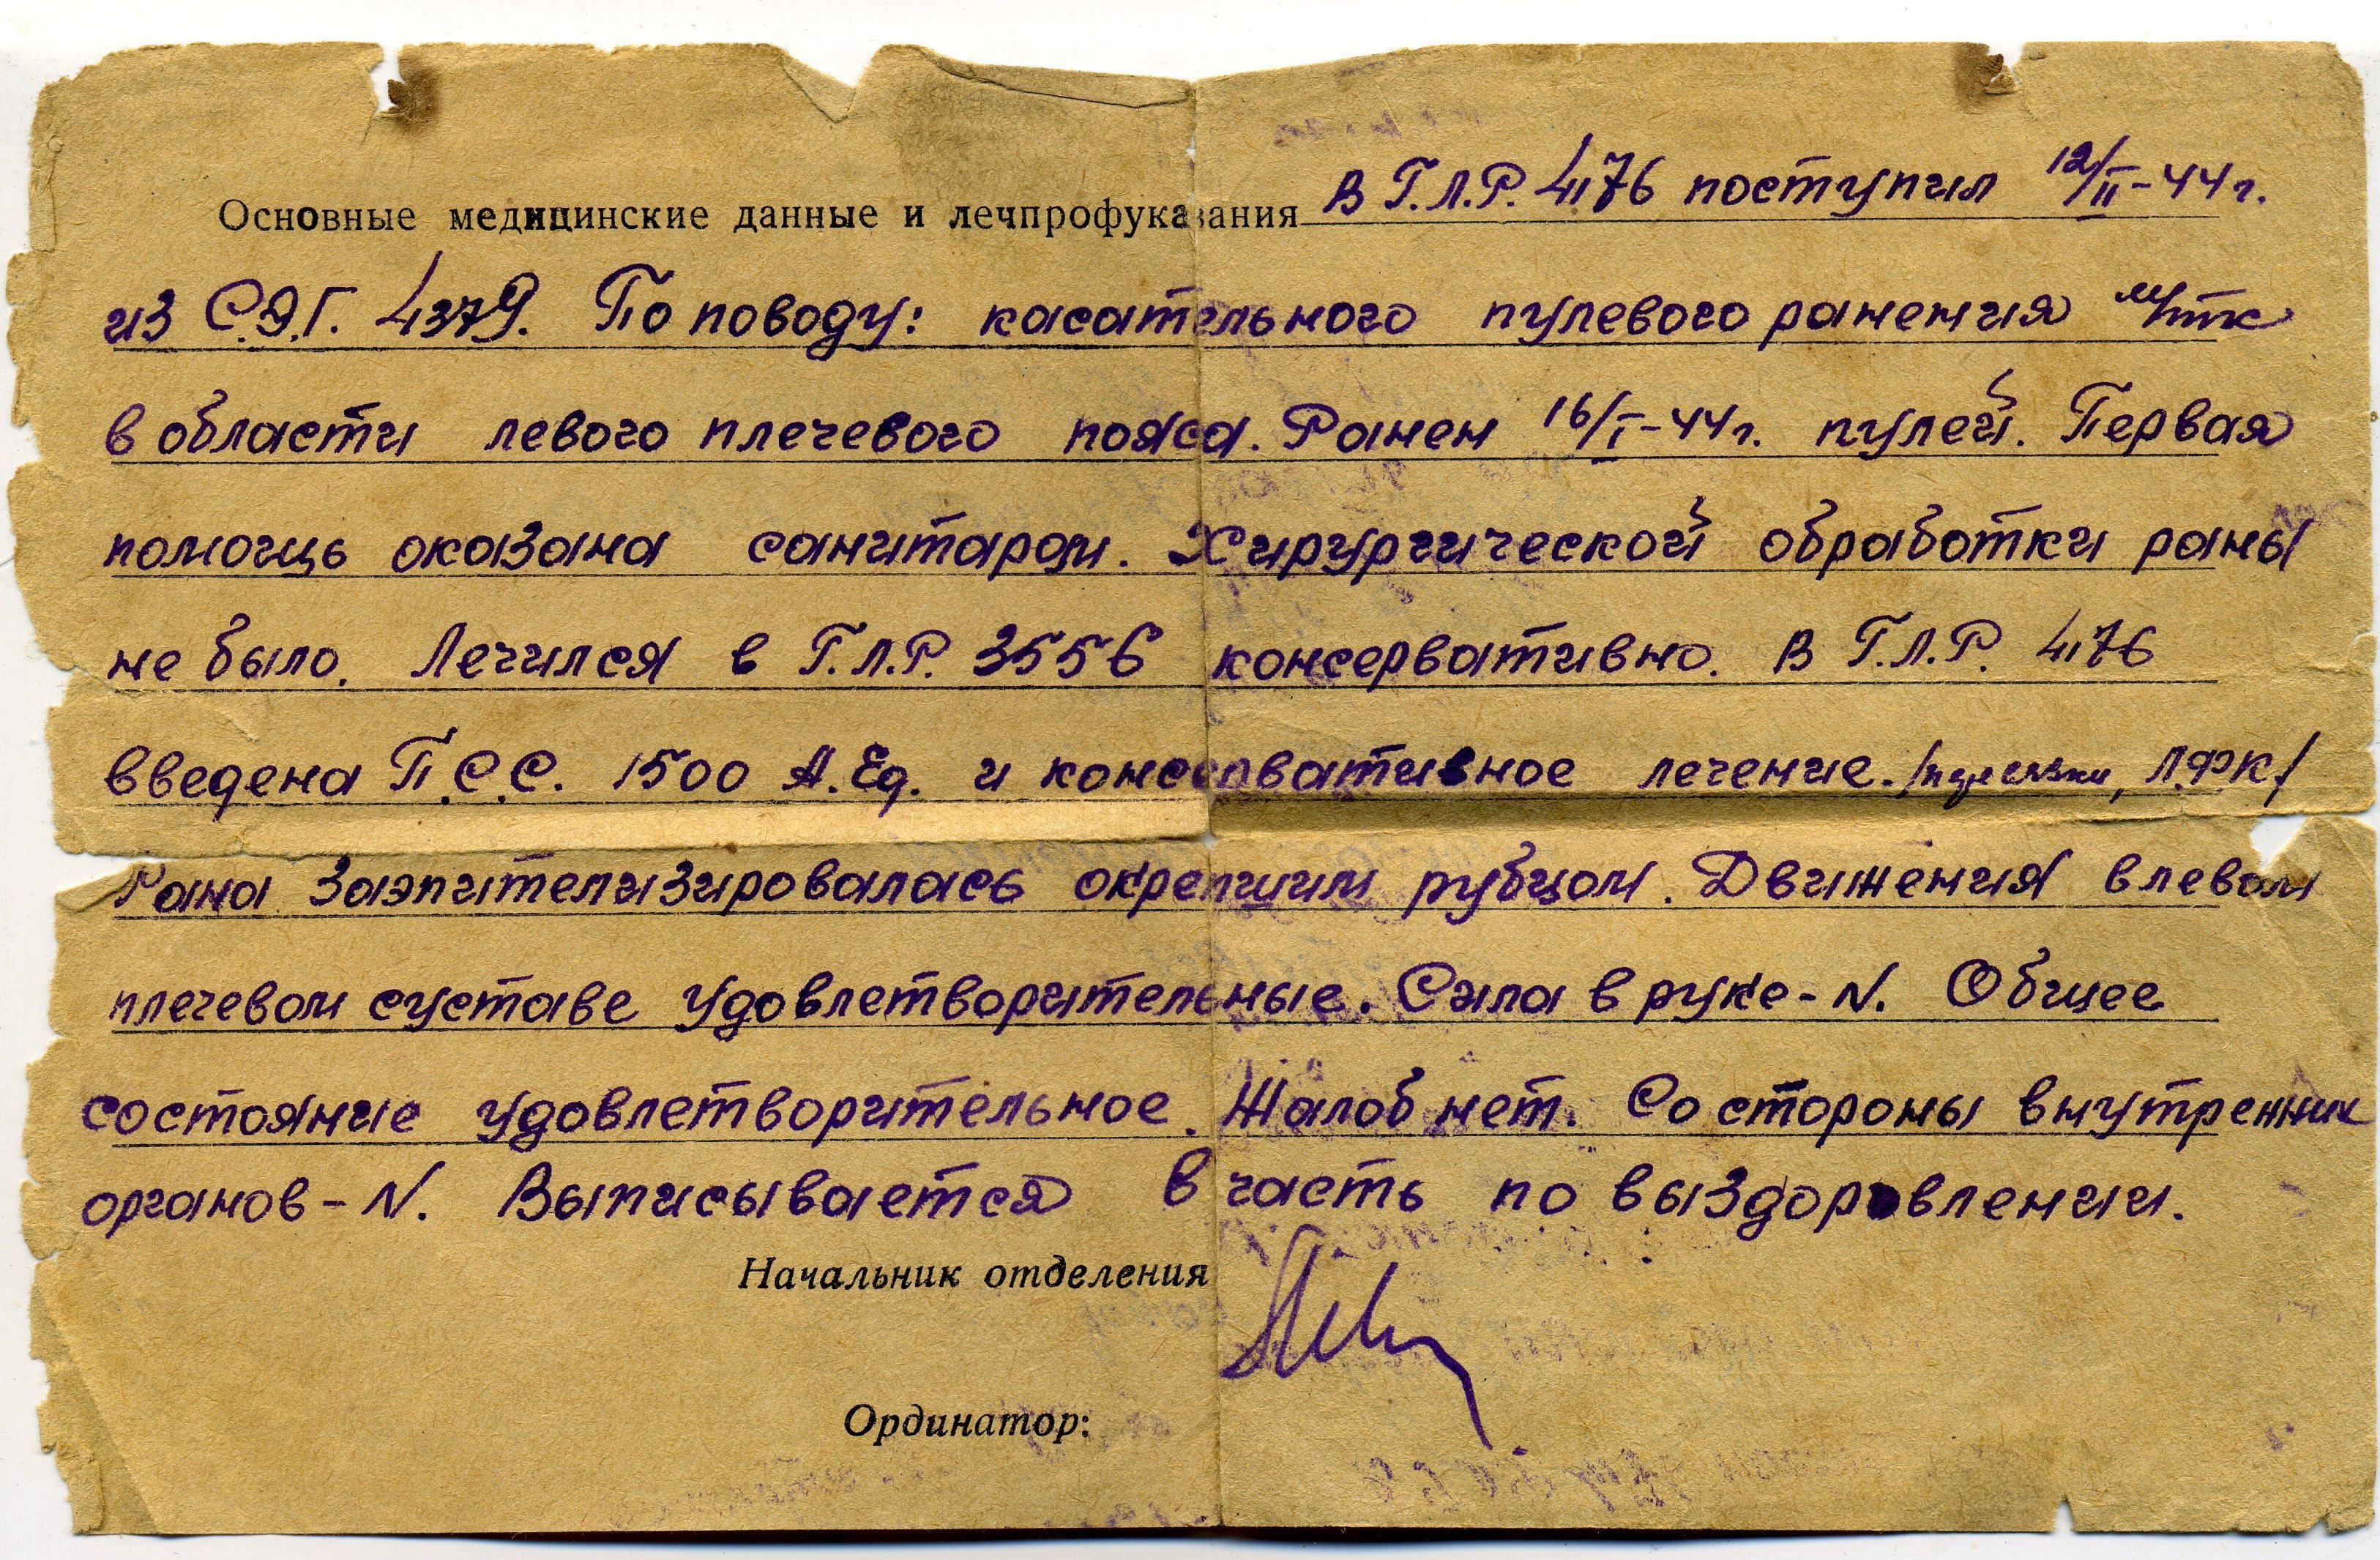 Основные медицинские данные и лечпрофуказания В Г.Л.Р. 4176 поступил 12/II-44г.
из С.Э.Г. 4379. По поводу: касательного пулевого ранения м/тк
в области левого плечевого пояса. Ранен 16/I-44г. пулей. Первая
помощь оказана санитаром. Хирургической обработки раны
не было. Лечился в Г.Л.Р. 3556 консервативно. В Г.Л.Р. 4176
введена П.С.С. 1500 А.Ед. и консервативное лечение. /перевязки, Л.Ф.К/
Рана заэпителизировалась окрепшим рубцом. Движения в левом
плечевом суставе удовлетворительные. Сила в руке - N. Общее
состояние удовлетворительное. Жалоб нет. Со стороны внутренних
органов - N. Выписывается в часть по выздоровлении.
Начальник отделения
Ординатор: